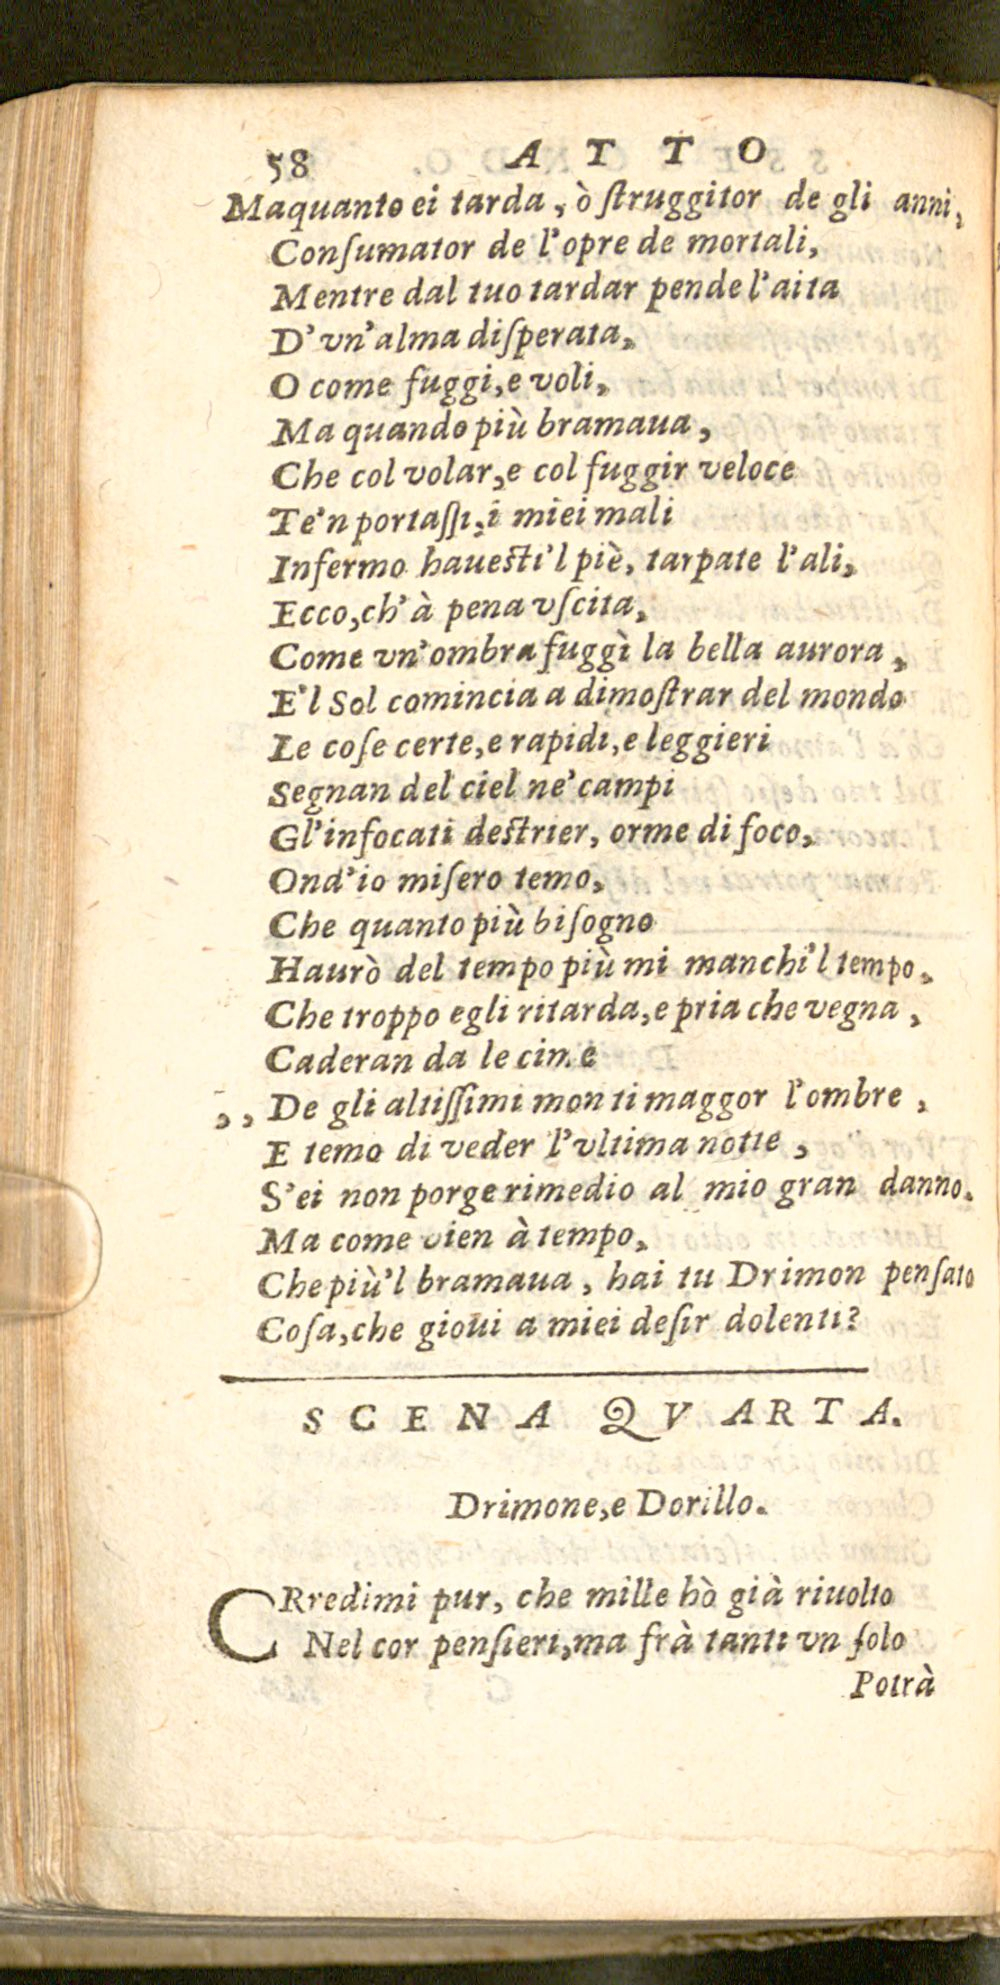 58 ATTO
Maquanto ei tarda, ò ſtruggitor de gli anni,
Conſumator de l'opre de mortali,
Mentre dal tuo tardar pende l'aita
D'vn'alma diſperata,
O come fuggi, e voli,
Ma quando più bramaua,
Che col volar, e col fuggir veloce
Te'n portaſſi, i miei mali
Infermo haueſti'l piè, tarpate l'ali,
Ecco, ch'à pena vſcita,
Come vn'ombra fuggì la bella aurora,
E'l Sol comincia a dimoſtrar del mondo
Le coſe certe, e rapidi, e leggieri
Segnan del ciel ne'campi
Gl'infocati deſtrier, orme di foco,
Ond'io miſero temo,
Che quanto più biſogno
Haurò del tempo più mi manchi'l tempo,
Che troppo egli ritarda, e pria che vegna,
Caderan da le cime
,, De gli altiſſimi monti maggor l'ombre,
E temo di veder l'vltima notte,
S'ei non porge rimedio al mio gran danno.
Ma come vien à tempo,
Che più'l bramaua, hai tu Drimon penſato
Coſa, che gioui a miei deſir dolenti?
SCENA QVARTA.
Drimone, e Dorillo.
CRredimi pur, che mille hò già riuolto
Nel cor penſieri, ma frà tanti vn ſolo
Potrà